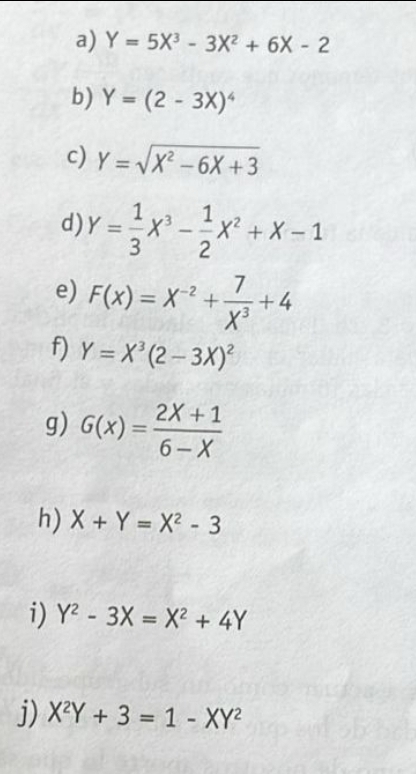 a) Y = 5X³ - 3X² + 6X - 2
b) Y = (2 - 3X)⁴
c) Y = √(X² - 6X + 3)
d) Y = 1/3 X³ - 1/2 X² + X - 1
e) F(x) = X⁻² + 7/X³ + 4
f) Y = X³(2 - 3X)²
g) G(x) = (2X + 1)/(6 - X)
h) X + Y = X² - 3
i) Y² - 3X = X² + 4Y
j) X²Y + 3 = 1 - XY²